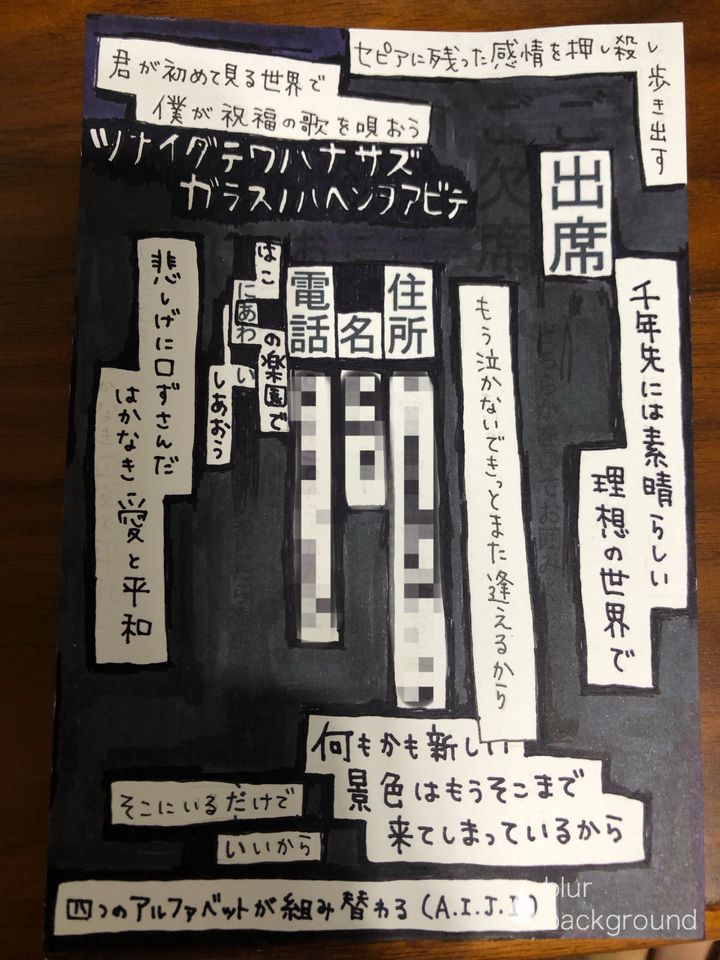 セピアに残った感情を押し殺し
歩き出す
君が初めて見る世界で
僕が祝福の歌を唄おう
ツナイダテヲハナサズ
ガラスノハヘンヲアビテ
ご出席
ご欠席
千年先には素晴らしい
理想の世界で
もう泣かないできっとまた逢えるから
住所
名
電話
はこ
にあわ
の楽園で
い
しあおう
悲しげに口ずさんだ
はかなき愛と平和
何もかも新しい
景色はもうそこまで
来てしまっているから
そこにいるだけで
いいから
四つのアルファベットが組み替わる(A.I.J.I)
blur
background